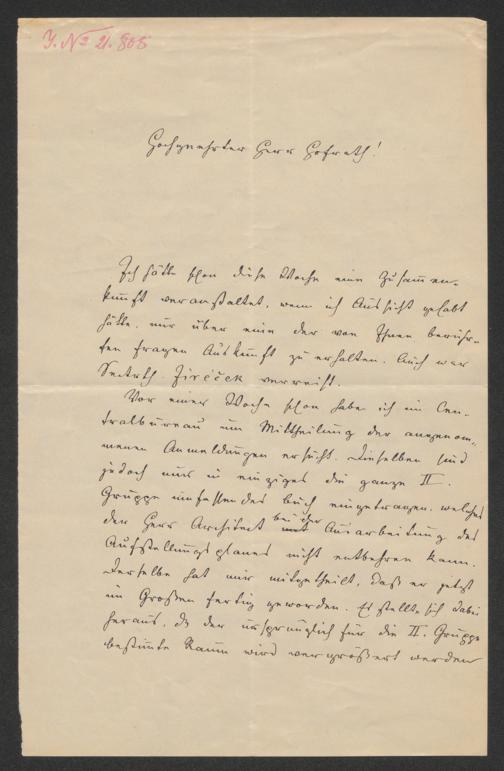 J. No 21.808
Hochgeehrter Herr Hofrath!
Ich hätte schon diese Woche eine Zusam̄en-
kunft veranstaltet, wenn ich Aussicht gehabt
hätte, nur über eine der von Ihnen berühr-
ten Fragen Auskunft zu erhalten. Auch war
Jireček verreist.
Vor einer Woche schon habe ich im Cen-
tralbüreau um Mittheilung der angenom-
menen Anmeldungen ersucht. Dieselben sind
jedoch nur in ein einziges die ganze II.
Gruppe umfassendes Buch eingetragen, welches
der Herr Architect bei der Ausarbeitung des
Aufstellungsplanes nicht entbehren kann.
Derselbe hat mir mitgetheilt, daß er jetzt
im Großen fertig geworden. Es stellte sich dabei
heraus, daß der ursprünglich für die II. Gruppe
bestim̄te Raum wird vergrößert werden